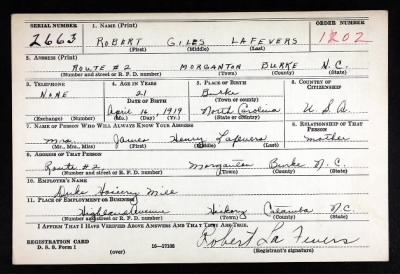 SERIAL NUMBER 1. NAME (Print) ORDER NUMBER
2663 ROBERT GILES LAFEVERS 1202
(First) (Middle) (Last)
2. ADDRESS (Print)
ROUTE #2 MORGANTON BURKE N.C.
(Number and street or R. F. D. number) (Town) (County) (State)
3. TELEPHONE 4. AGE IN YEARS 5. PLACE OF BIRTH 6. COUNTRY OF CITIZENSHIP
NONE 21 Burke
DATE OF BIRTH (Town or county)
April 16 1919 North Carolina U.S.A.
(Exchange) (Number) (Mo.) (Day) (Yr.) (State or country)
7. NAME OF PERSON WHO WILL ALWAYS KNOW YOUR ADDRESS 8. RELATIONSHIP OF THAT PERSON
Mrs. James Henry Lafevers mother
(Mr., Mrs., Miss) (First) (Middle) (Last)
9. ADDRESS OF THAT PERSON
Route #2 Morganton Burke N.C.
(Number and street or R. F. D. number) (Town) (County) (State)
10. EMPLOYER'S NAME
Hosiery Mill
11. PLACE OF EMPLOYMENT OR BUSINESS
Highland Avenue Hickory Catawba N.C.
(Number and street or R. F. D. number) (Town) (County) (State)
I AFFIRM THAT I HAVE VERIFIED ABOVE ANSWERS AND THAT THEY ARE TRUE.
Robert La Fevers
REGISTRATION CARD
D. S. S. Form 1 (over) 16—17105 (Registrant's signature)